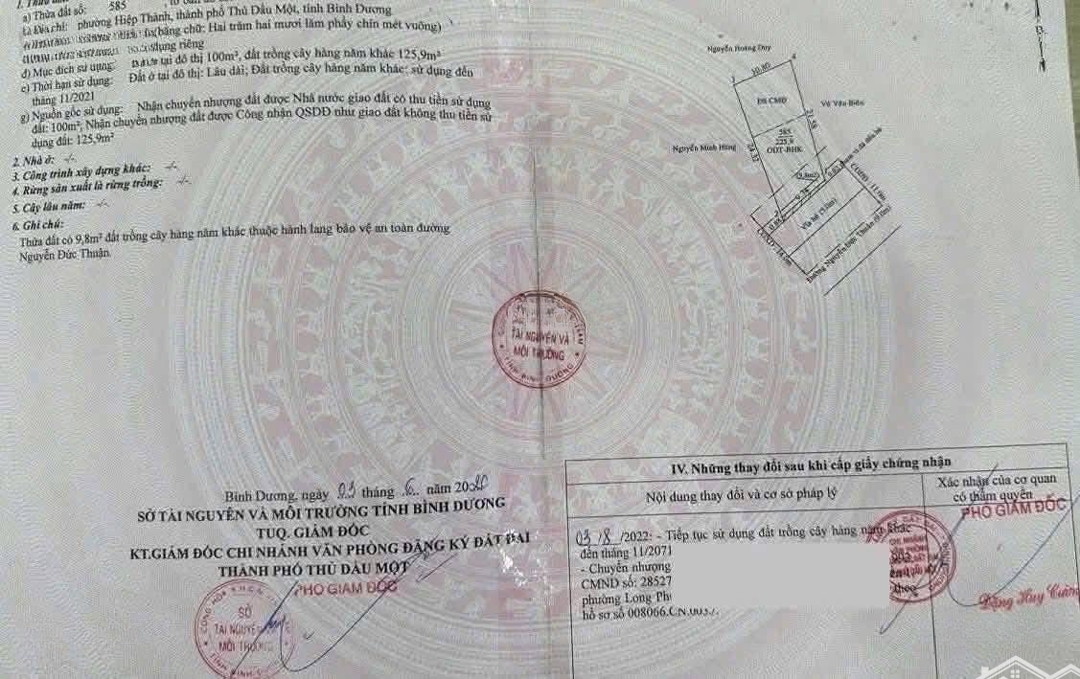 a) Thửa đất số: 585
b) Địa chỉ: phường Hiệp Thành, thành phố Thủ Dầu Một, tỉnh Bình Dương
bằng chữ: Hai trăm hai mươi lăm phẩy chín mét vuông)
dụng riêng
đ) Mục đích sử dụng: tại đô thị 100m², đất trồng cây hàng năm khác 125,9m²
e) Thời hạn sử dụng: Đất ở tại đô thị: Lâu dài; Đất trồng cây hàng năm khác: sử dụng đến
tháng 11/2021
g) Nguồn gốc sử dụng: Nhận chuyển nhượng đất được Nhà nước giao đất có thu tiền sử dụng
đất: 100m²; Nhận chuyển nhượng đất được Công nhận QSDĐ như giao đất không thu tiền sử
dụng đất: 125,9m²
2. Nhà ở: -/-
3. Công trình xây dựng khác: -/-
4. Rừng sản xuất là rừng trồng: -/-
5. Cây lâu năm: -/-
6. Ghi chú:
Thửa đất có 9,8m² đất trồng cây hàng năm khác thuộc hành lang bảo vệ an toàn đường
Nguyễn Đức Thuận
Nguyễn Hoàng Duy
10.80
Đã CMĐ
Võ Văn Biên
21.58
585
225,9
ODT-BHK
Nguyễn Minh Hùng
24.32
(9,8m2)
9.78
0.83
0.88
Vỉa hè (5.0m)
Đường Nguyễn Đức Thuận (9.0m)
TÀI NGUYÊN VÀ
MÔI TRƯỜNG
TỈNH BÌNH DƯƠNG
Bình Dương, ngày 03 tháng 6 năm 2020
SỞ TÀI NGUYÊN VÀ MÔI TRƯỜNG TỈNH BÌNH DƯƠNG
TUQ. GIÁM ĐỐC
KT.GIÁM ĐỐC CHI NHÁNH VĂN PHÒNG ĐĂNG KÝ ĐẤT ĐAI
THÀNH PHỐ THỦ DẦU MỘT
PHÓ GIÁM ĐỐC
SỞ
TÀI NGUYÊN
MÔI TRƯỜNG
IV. Những thay đổi sau khi cấp giấy chứng nhận
Nội dung thay đổi và cơ sở pháp lý
Xác nhận của cơ quan
có thẩm quyền
PHÓ GIÁM ĐỐC
03/8/2022: - Tiếp tục sử dụng đất trồng cây hàng năm khác
đến tháng 11/2071
- Chuyển nhượng
CMND số: 28527
phường Long Ph
hồ sơ số 008066.CN.003
Đặng Huy Cường